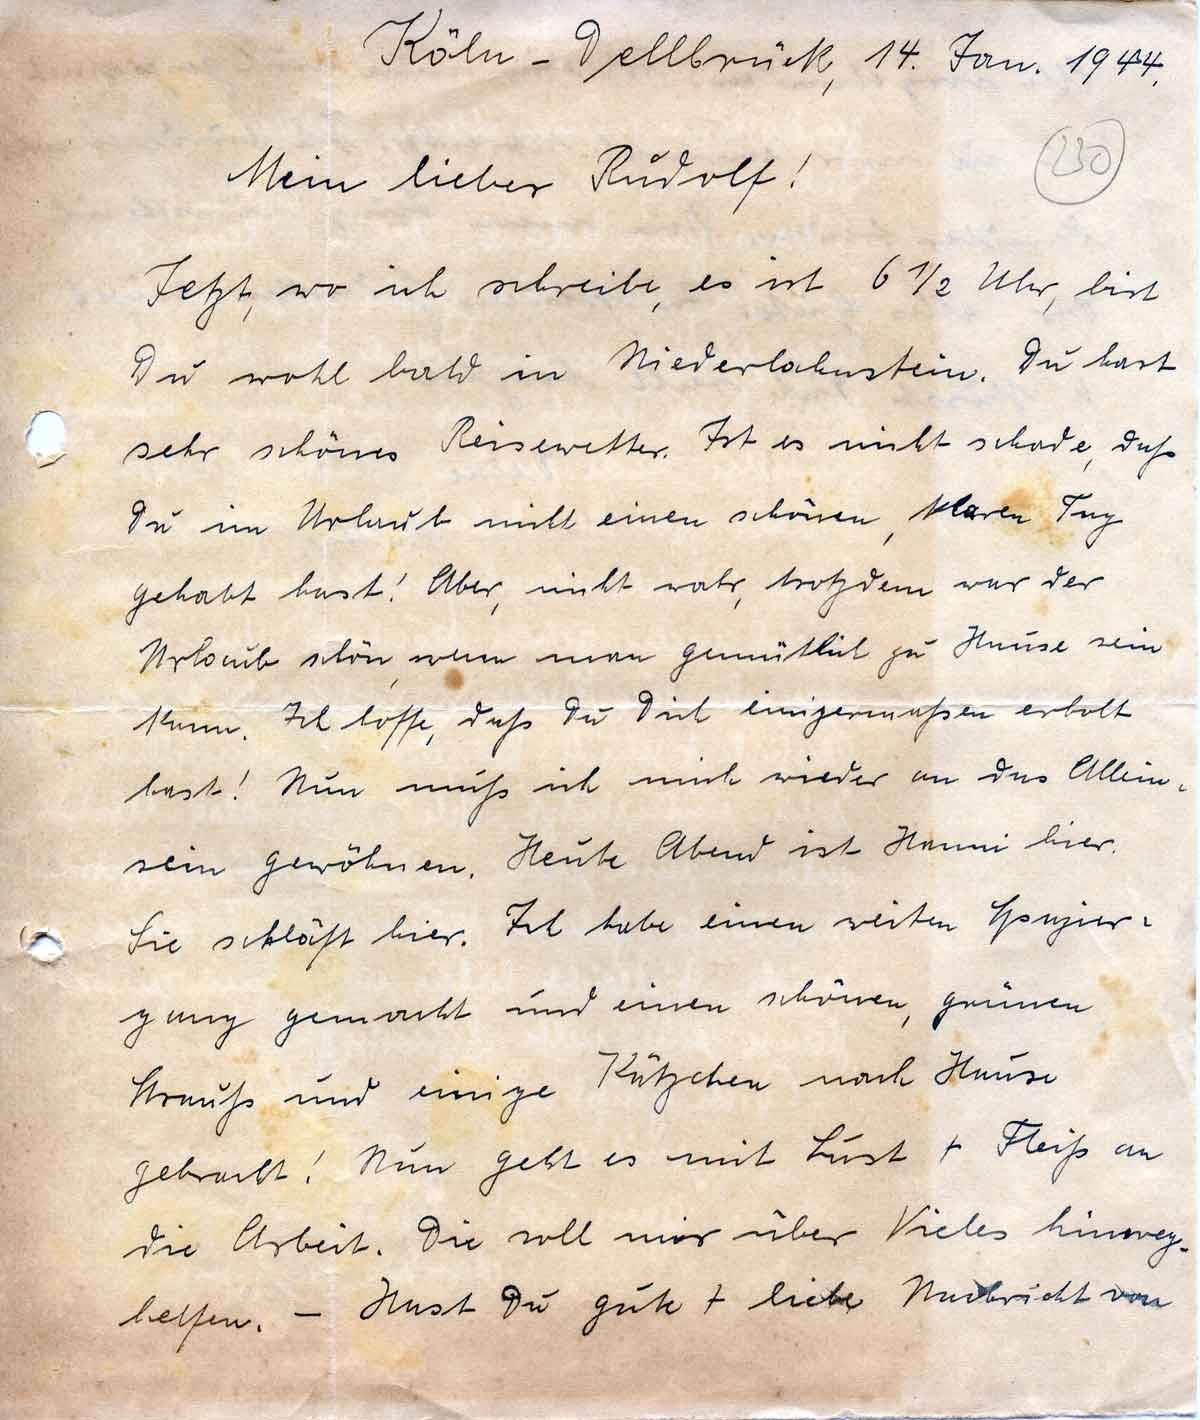 Köln - Dellbrück, 14. Jan. 1944.
230
Mein lieber Rudolf!
Jetzt, wo ich schreibe, es ist 6 1/2 Uhr, bist
Du wohl bald in Niederlahnstein. Du hast
sehr schönes Reisewetter. Ist es nicht schade, daß
Du im Urlaub nicht einen schönen, klaren Tag
gehabt hast! Aber, nicht wahr, trotzdem war der
Urlaub schön, wenn man gemütlich zu Hause sein
kann. Ich hoffe, daß Du Dich einigermaßen erholt
hast! Nun muß ich mich wieder an das Allein-
sein gewöhnen. Heute Abend ist Hanni hier.
Sie schläft hier. Ich habe einen weiten Spazier-
gang gemacht und einen schönen, grünen
Strauß und einige Kätzchen nach Hause
gebracht! Nun geht es mit Lust + Fleiß an
die Arbeit. Die soll mir über Vieles hinweg-
helfen. — Hast Du gute + liebe Nachricht von